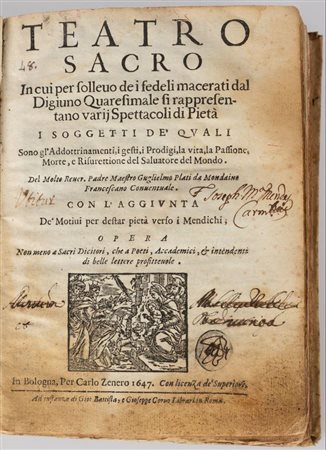 TEATRO
48.
SACRO
In cui per solleuo de i fedeli macerati dal
Digiuno Quaresimale si rappresen-
tano varij Spettacoli di Pietà
I SOGGETTI DE' QVALI
Sono gl'Addottrinamenti, i gesti, i Prodigi, la vita, la Passione,
Morte, e Risurettione del Saluatore del Mondo.
Del Molto Reuer. Padre Maestro Guglielmo Plati da Mondaino
Francescano Conuentuale.
F. Joseph Mª Mendez
CON L'AGGIVNTA
De' Motiui per destar pietà verso i Mendichi;
OPERA
Non meno a Sacri Dicitori, che a Poeti, Accademici, & intendenti
di belle lettere profitteuole.
In Bologna, Per Carlo Zenero 1647. Con licenza de' Superiori.
Ad instanza di Gio: Battista, e Gioseppe Coruo Librari in Roma.